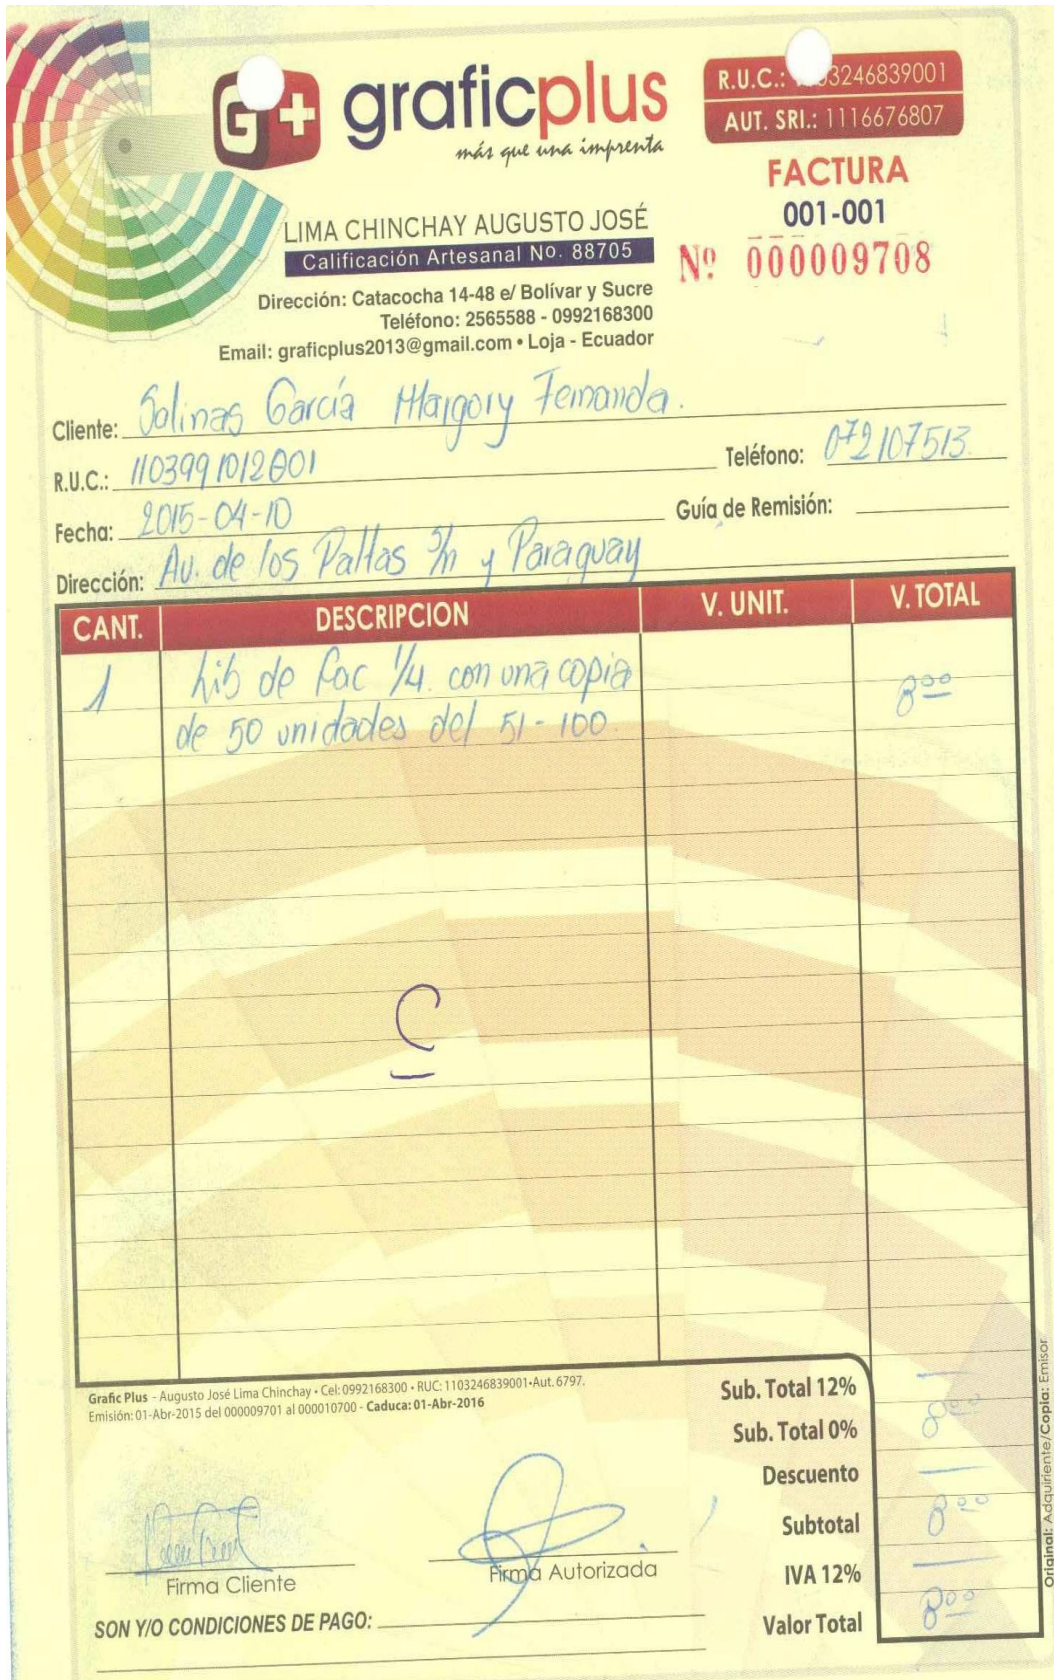 G+ graficplus
más que una imprenta
R.U.C.: 03246839001
AUT. SRI.: 1116676807
FACTURA
001-001
Nº 000009708
LIMA CHINCHAY AUGUSTO JOSÉ
Calificación Artesanal No. 88705
Dirección: Catacocha 14-48 e/ Bolívar y Sucre
Teléfono: 2565588 - 0992168300
Email: graficplus2013@gmail.com • Loja - Ecuador
Cliente: Salinas García Margory Fernanda.
R.U.C.: 1103991012001 Teléfono: 072107513
Fecha: 2015-04-10 Guía de Remisión:
Dirección: Av. de los Paltas S/n y Paraguay
CANT. DESCRIPCION V. UNIT. V. TOTAL
1 Lib de Fac 1/4. con una copia 8 00
de 50 unidades del 51-100
C
Grafic Plus - Augusto José Lima Chinchay • Cel: 0992168300 • RUC: 1103246839001•Aut. 6797.
Emisión: 01-Abr-2015 del 000009701 al 000010700 - Caduca: 01-Abr-2016
Sub. Total 12% —
Sub. Total 0% 8 00
Descuento —
Subtotal 8 00
IVA 12% —
Valor Total 8 00
Firma Cliente
Firma Autorizada
SON Y/O CONDICIONES DE PAGO:
Original: Adquiriente/Copia: Emisor